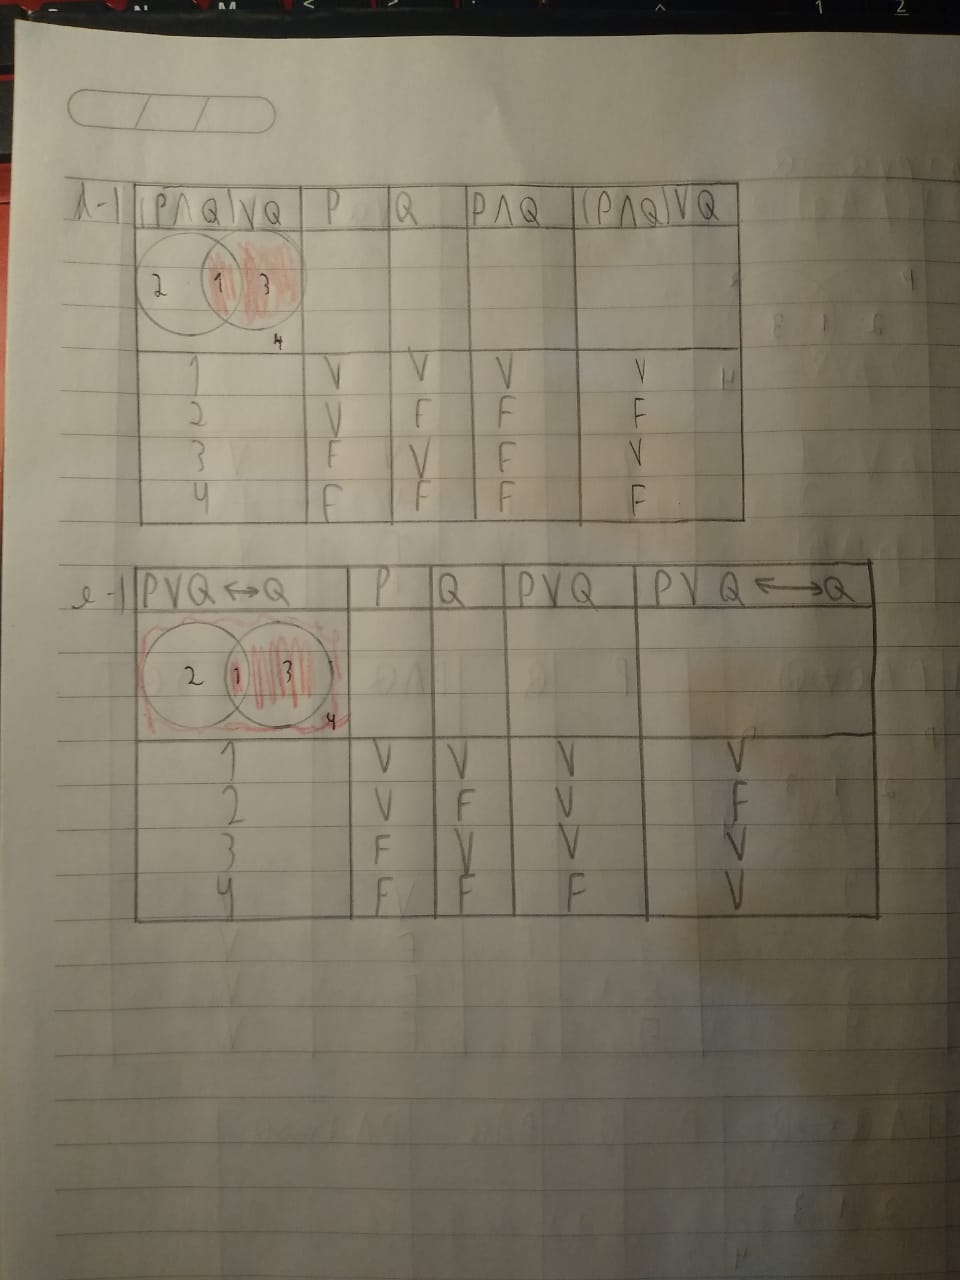 d-) (P∧Q)∨Q P Q P∧Q (P∧Q)∨Q
2 1 3
4
1 V V V V
2 V F F F
3 F V F V
4 F F F F
e-) P∨Q↔Q P Q P∨Q P∨Q⟷Q
2 1 3
4
1 V V V V
2 V F V F
3 F V V V
4 F F F V